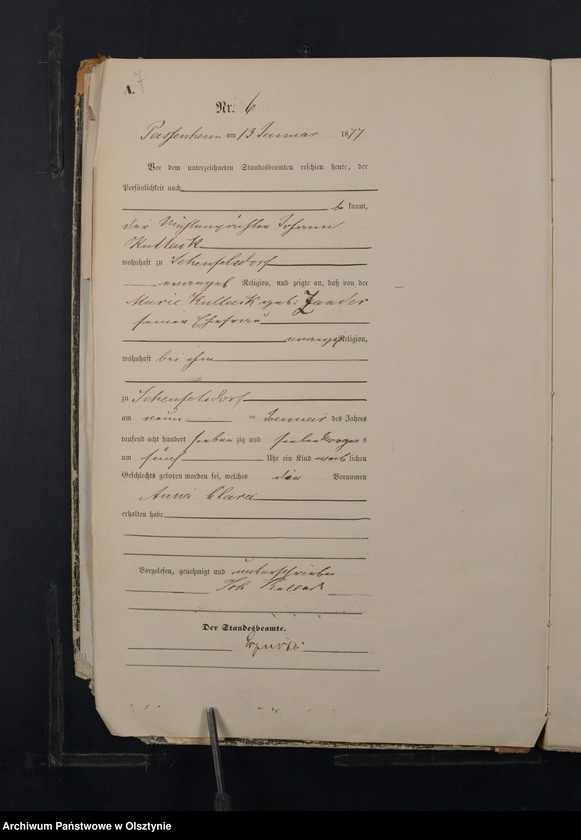 A. 7
Nr. 6
Passenheim am 13 Januar 1877
Vor dem unterzeichneten Standesbeamten erschien heute, der
Persönlichkeit nach
be kannt,
der Mühlenpächter Johann
Kullack
wohnhaft zu Scheufelsdorf
evangel. Religion, und zeigte an, daß von der
Marie Kullack geb. Zander
seiner Ehefrau
evang. Religion,
wohnhaft bei ihm
zu Scheufelsdorf
am neun ten Januar des Jahres
tausend acht hundert sieben zig und sieben Morgens
um fünf Uhr ein Kind weib lichen
Geschlechts geboren worden sei, welches den Vornamen
Anna Clara
erhalten habe
Vorgelesen, genehmigt und unterschrieben
Joh Kullack
Der Standesbeamte.
Archiwum Państwowe w Olsztynie